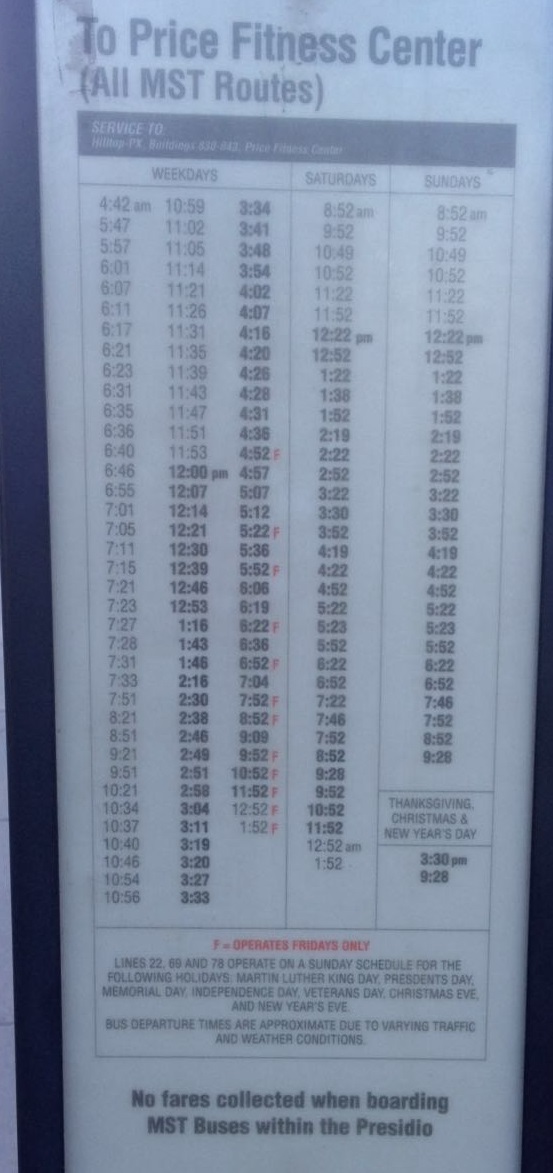 To Price Fitness Center
(All MST Routes)
SERVICE TO:
Hilltop-PX, Buildings 630-843, Price Fitness Center
WEEKDAYS SATURDAYS SUNDAYS *
4:42 am 10:59 3:34 8:52 am 8:52 am
5:47 11:02 3:41 9:52 9:52
5:57 11:05 3:48 10:49 10:49
6:01 11:14 3:54 10:52 10:52
6:07 11:21 4:02 11:22 11:22
6:11 11:26 4:07 11:52 11:52
6:17 11:31 4:16 12:22 pm 12:22 pm
6:21 11:35 4:20 12:52 12:52
6:23 11:39 4:26 1:22 1:22
6:31 11:43 4:28 1:38 1:38
6:35 11:47 4:31 1:52 1:52
6:36 11:51 4:36 2:19 2:19
6:40 11:53 4:52 F 2:22 2:22
6:46 12:00 pm 4:57 2:52 2:52
6:55 12:07 5:07 3:22 3:22
7:01 12:14 5:12 3:30 3:30
7:05 12:21 5:22 F 3:52 3:52
7:11 12:30 5:36 4:19 4:19
7:15 12:39 5:52 F 4:22 4:22
7:21 12:46 6:06 4:52 4:52
7:23 12:53 6:19 5:22 5:22
7:27 1:16 6:22 F 5:23 5:23
7:28 1:43 6:36 5:52 5:52
7:31 1:46 6:52 F 6:22 6:22
7:33 2:16 7:04 6:52 6:52
7:51 2:30 7:52 F 7:22 7:46
8:21 2:38 8:52 F 7:46 7:52
8:51 2:46 9:09 7:52 8:52
9:21 2:49 9:52 F 8:52 9:28
9:51 2:51 10:52 F 9:28
10:21 2:58 11:52 F 9:52
10:34 3:04 12:52 F 10:52
10:37 3:11 1:52 F 11:52
10:40 3:19 12:52 am
10:46 3:20 1:52
10:54 3:27
10:56 3:33
THANKSGIVING,
CHRISTMAS &
NEW YEAR'S DAY
3:30 pm
9:28
F = OPERATES FRIDAYS ONLY
LINES 22, 69 AND 78 OPERATE ON A SUNDAY SCHEDULE FOR THE
FOLLOWING HOLIDAYS: MARTIN LUTHER KING DAY, PRESDENTS DAY,
MEMORIAL DAY, INDEPENDENCE DAY, VETERANS DAY, CHRISTMAS EVE,
AND NEW YEAR'S EVE.
BUS DEPARTURE TIMES ARE APPROXIMATE DUE TO VARYING TRAFFIC
AND WEATHER CONDITIONS.
No fares collected when boarding
MST Buses within the Presidio